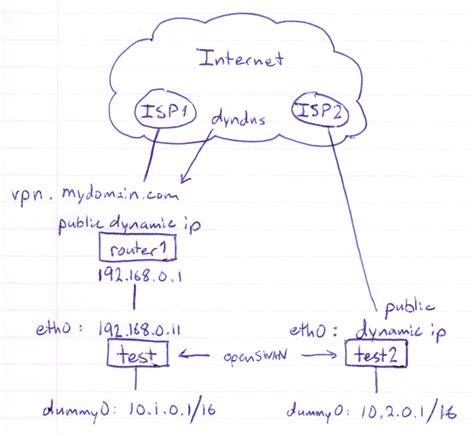 Internet
ISP1
ISP2
dyndns
vpn.mydomain.com
public dynamic ip
router1
192.168.0.1
public
eth0: 192.168.0.11
eth0: dynamic ip
test
openSWAN
test2
dummy0: 10.1.0.1/16
dummy0: 10.2.0.1/16